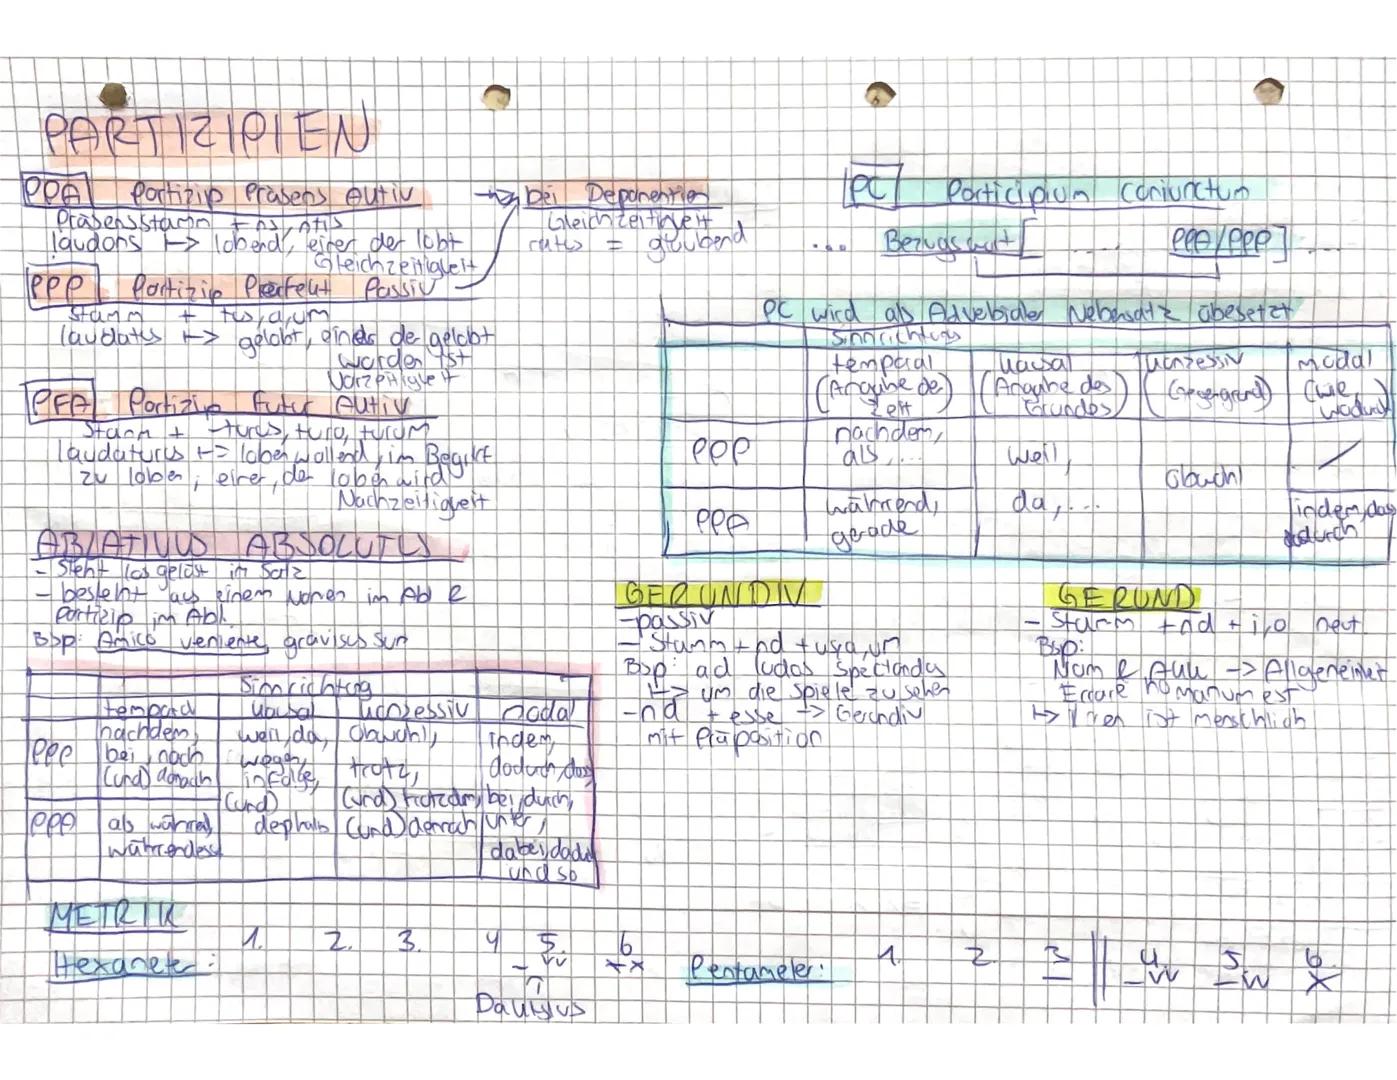 PARTIZIPIEN
PPA Partizip Präsens Aktiv
Präsensstamm + ns, ntis
laudans → lobend, einer der lobt
Gleichzeitigkeit
PPP Partizip Perfekt Passiv
Stamm + tus, a, um
laudatus → gelobt, einer der gelobt
worden ist
Vorzeitigkeit
PFA Partizip Futur Aktiv
Stamm + -turus, tura, turum
laudaturus → loben wollend, im Begriff
zu loben, einer, der loben wird
Nachzeitigkeit
→ bei Deponentien
Gleichzeitigkeit
ratus = glaubend
PC Participium coniunctum
... Bezugswort [ ... PPA/PPP] ...
PC wird als Adverbialer Nebensatz übesetzt
Sinnrichtung
temporal kausal konzessiv modal
(Angabe der Zeit) (Angabe des Grundes) (Gegengrund) (wie, wodurch)
PPP nachdem, als, ... weil, da, ... obwohl /
PPA während, gerade indem, das dadurch
ABLATIVUS ABSOLUTUS
- steht losgelöst im Satz
- besteht aus einem Nomen im Abl &
Partizip im Abl.
Bsp: Amico veniente gravisus sum
Sinnrichtung
temporal kausal konzessiv modal
PPP nachdem, weil, da, obwohl, indem,
bei, nach wegen, trotz, dadurch, das
(und) danach infolge, (und) trotzdem, bei, durch,
(und)
PPA als während, deshalb (und) dennoch unter,
währendess dabei, dadu
und so
GERUNDIV
- passiv
- Stamm + nd + us, a, um
Bsp: ad ludos spectandos
→ um die Spiele zu sehen
- nd + esse → Gerundiv
mit Präposition
GERUND
- Stamm + nd + i, o neut
Bsp:
Nom & Akk → Allgemeinheit
Errare humanum est
→ Irren ist menschlich
METRIK
Hexameter: 1. 2. 3. 4 5. 6
– ᴗᴗ ××
Daktylus
Pentameter: 1. 2. 3 || 4. 5. 6.
– – ᴗᴗ – ᴗᴗ ×